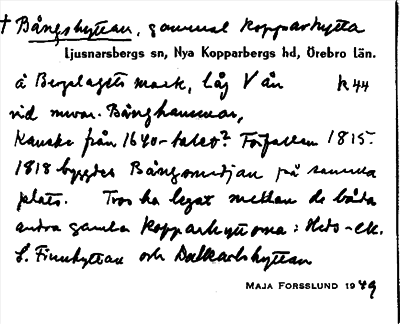 † Bångshyttan, gammal kopparhytta
Ljusnarsbergs sn, Nya Kopparbergs hd, Örebro län.
å Bergslagets mark, låg V ån K 44
vid nuvar. Bånghammar,
Kanske från 1640-talet? Förfallen 1815.
1818 byggdes Bångsmedjan på samma
plats. Tros ha legat mellan de båda
andra gamla kopparhyttorna: Heds- ek.
L. Finnhyttan och Dalkarlshyttan
MAJA FORSSLUND 1949